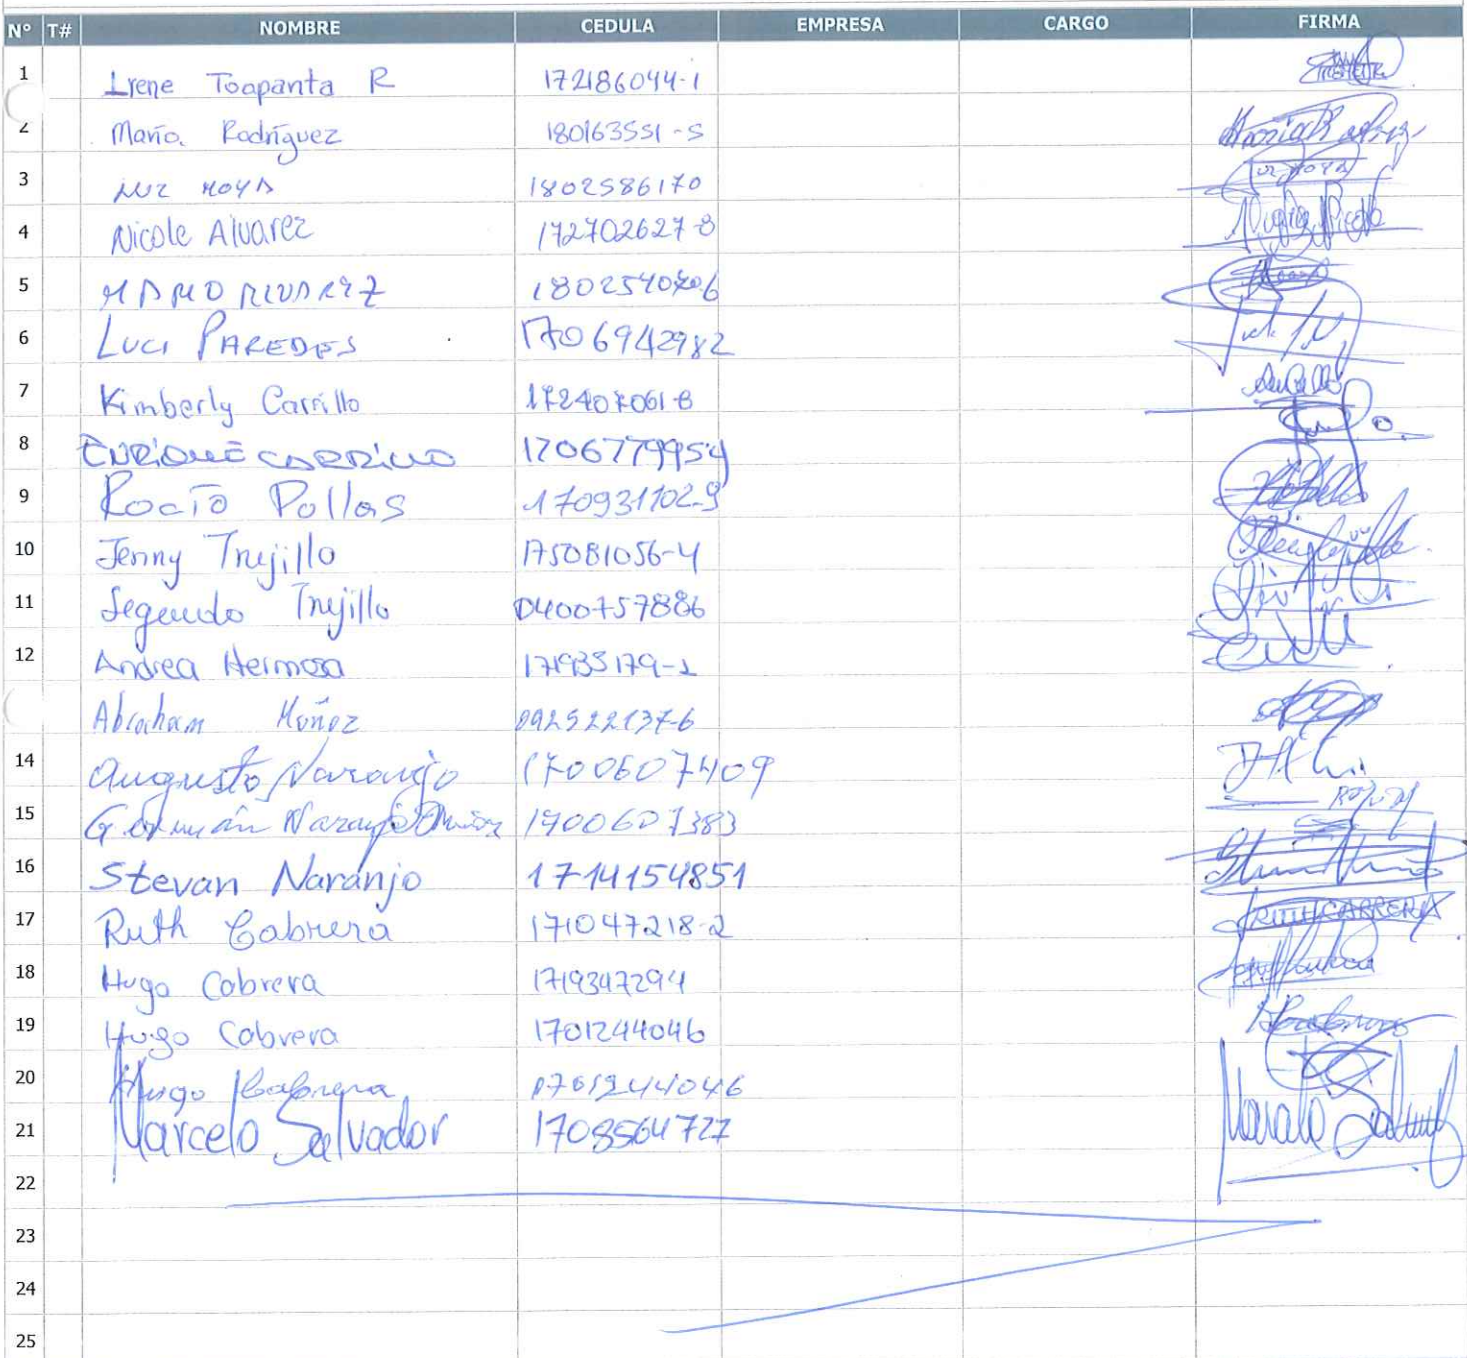 N° T# NOMBRE CEDULA EMPRESA CARGO FIRMA
1 Irene Toapanta R 172186044-1
2 María Rodríguez 180163551-5
3 LUZ MOYA 1802586170
4 Nicole Alvarez 172702627-8
5 MARIO ALVAREZ
6 LUCI PAREDES 1706942982
7 Kimberly Carrillo 172407061-8
8 ENRIQUE CARRILLO 1706779954
9 Rocío Pollas 170931102-9
10 Jenny Trujillo 175081056-4
11 Segundo Trujillo 0400757886
12 Andrea Hermosa 171935179-1
Abraham Muñoz 092522137-6
14 Augusto Naranjo 1700607409
15 Germán Naranjo 1700607383
16 Stevan Naranjo 1714154851
17 Ruth Cabrera 171047218-2 RUTH CABRERA
18 Hugo Cabrera 1719347294
19 Hugo Cabrera 1701244046
20 Hugo Cabrera
21 Marcelo Salvador 1708564727 Marcelo Salvador
22
23
24
25